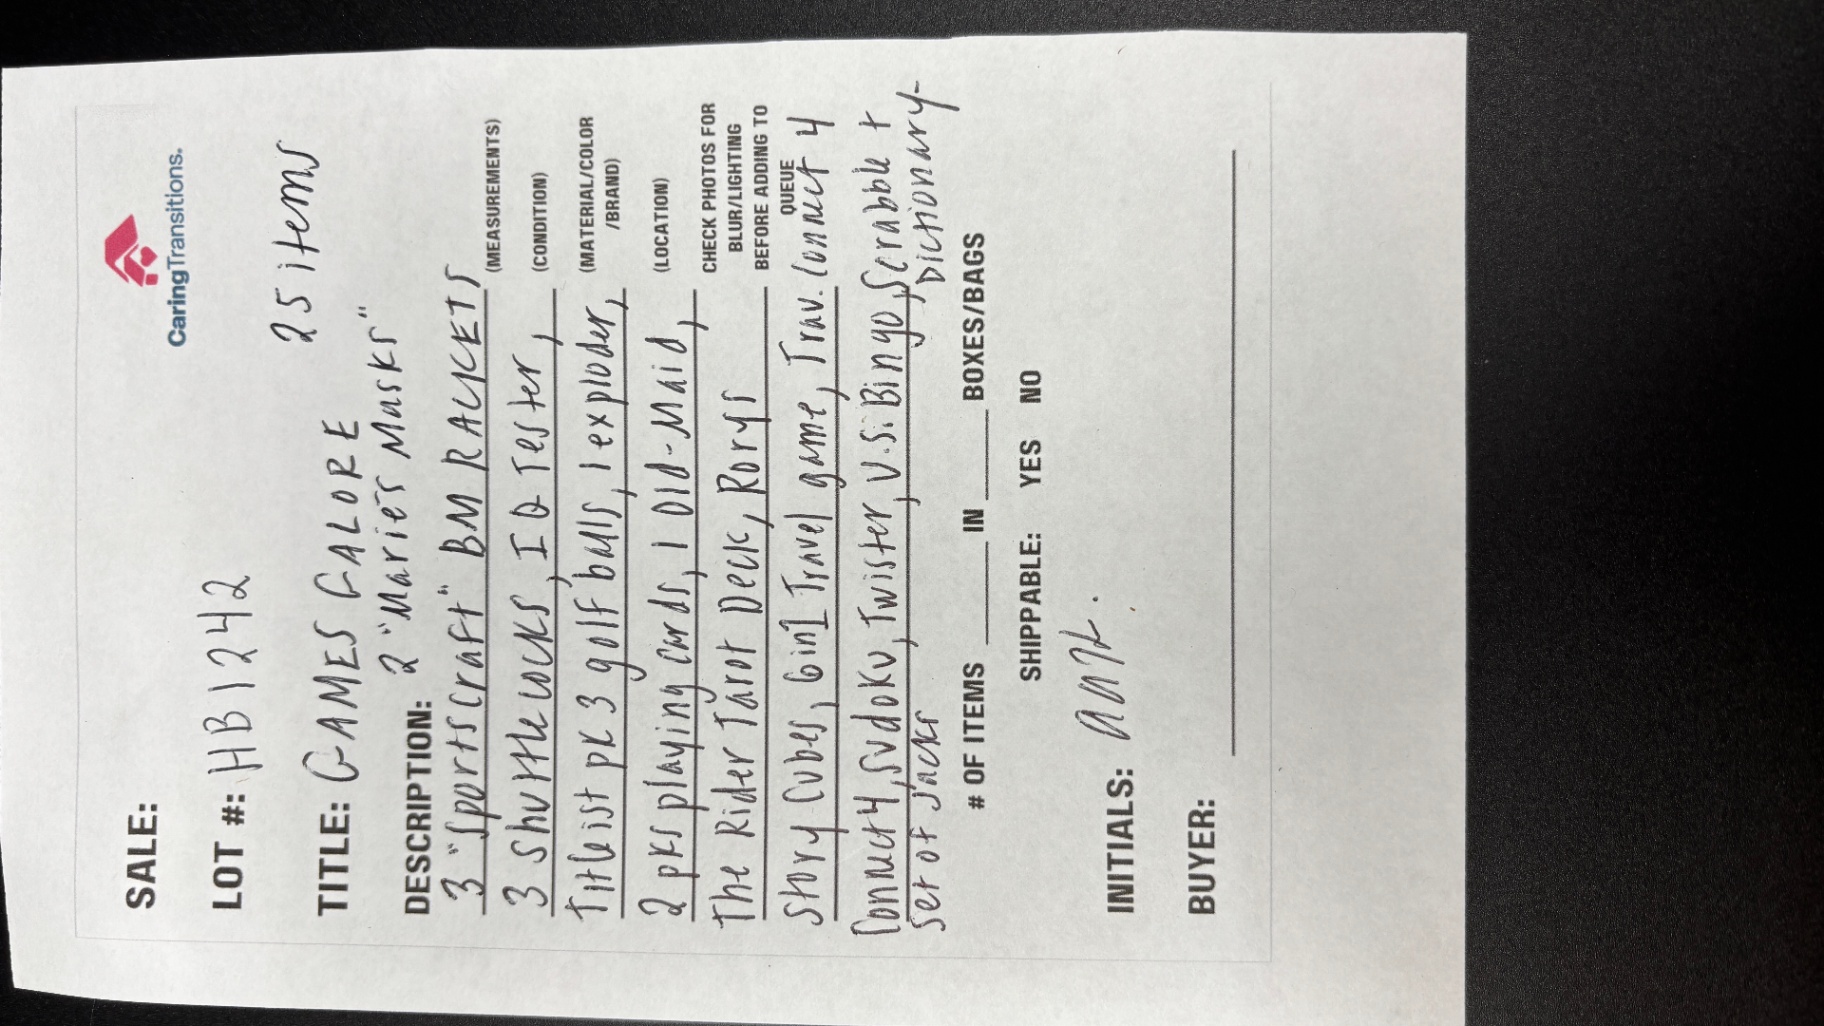 CaringTransitions.
SALE:
LOT #: HB1242
25 items
TITLE: GAMES GALORE
2 "Marie's Masks"
DESCRIPTION:
3 "Sportscraft" BM RACKETS
(MEASUREMENTS)
3 shuttlecocks, IQ Tester,
(CONDITION)
Titleist pk 3 golf balls, 1 exploder,
(MATERIAL/COLOR
/BRAND)
2 pks playing cards, 1 Old-Maid,
(LOCATION)
The Rider Tarot Deck, Rorys
CHECK PHOTOS FOR
BLUR/LIGHTING
BEFORE ADDING TO
QUEUE
Story Cubes, 6 in 1 Travel game, Trav. Connect 4
Connect 4, Sudoku, Twister, U.S. Bingo, Scrabble +
Dictionary-
set of Jacks
# OF ITEMS ____ IN ____ BOXES/BAGS
SHIPPABLE: YES NO
INITIALS:
BUYER: